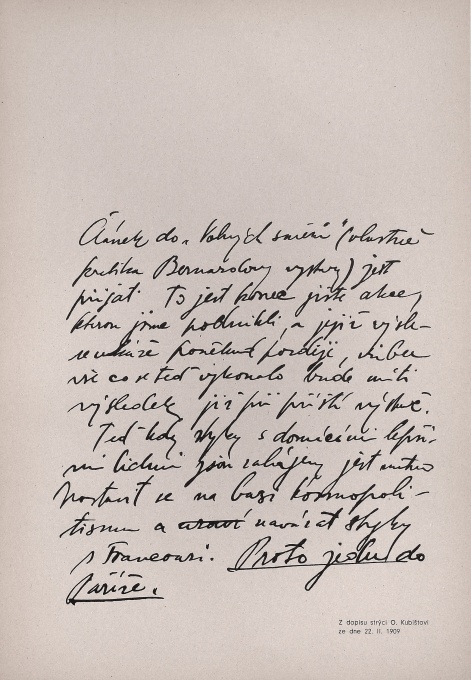 Článek do „Volných směrů" (vlastně
kritika Bernardovy výstavy) jest
přijat. To jest konec jisté akce,
kterou jsme podnikli, a jejíž výsle-
se ukáže poněkud později,
vše co se teď vykonalo bude míti
výsledek, již při příští výstavě.
Teď kdy styky s domácími lepší-
mi lidmi jsou zahájeny jest nutno
postavit se na basi kosmopoli-
tismu a navázat styky
s Francouzi. Proto jedu do
Paříže.
Z dopisu strýci O. Kubištovi
ze dne 22. II. 1909